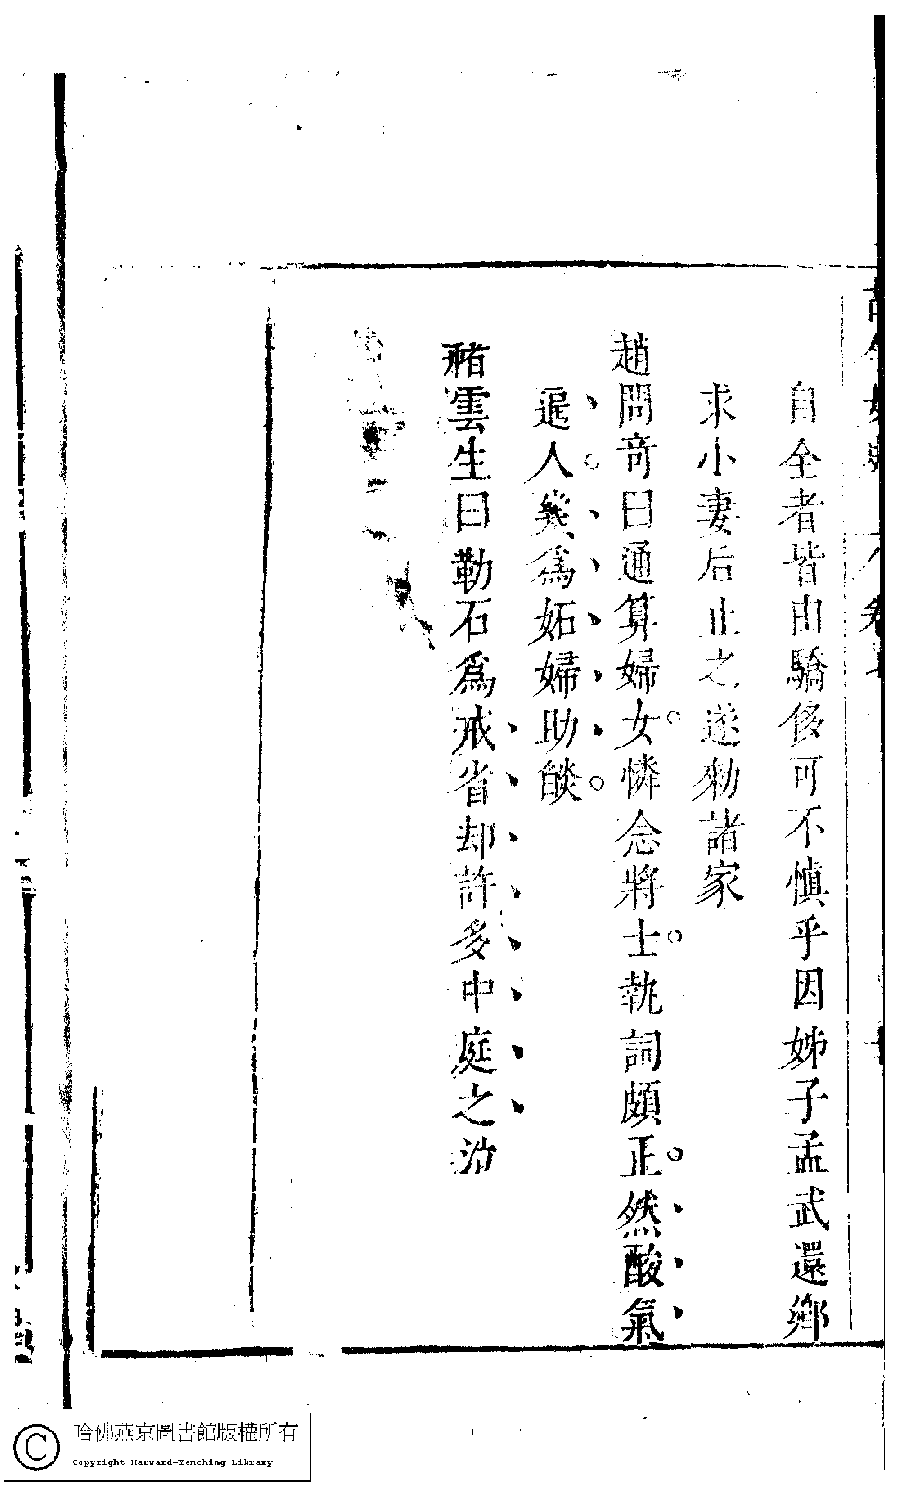 自全者皆由驕侈可不慎乎因姊子孟武還鄉
求小妻后止之遂勅諸家
趙問竒曰通算婦女憐念將士執詞頗正然酸氣
逼人幾爲妬婦助燄
雲生曰勒石爲戒省却許多中庭之
哈佛燕京圖書館版權所有
Copyright Harvard-Yenching Library